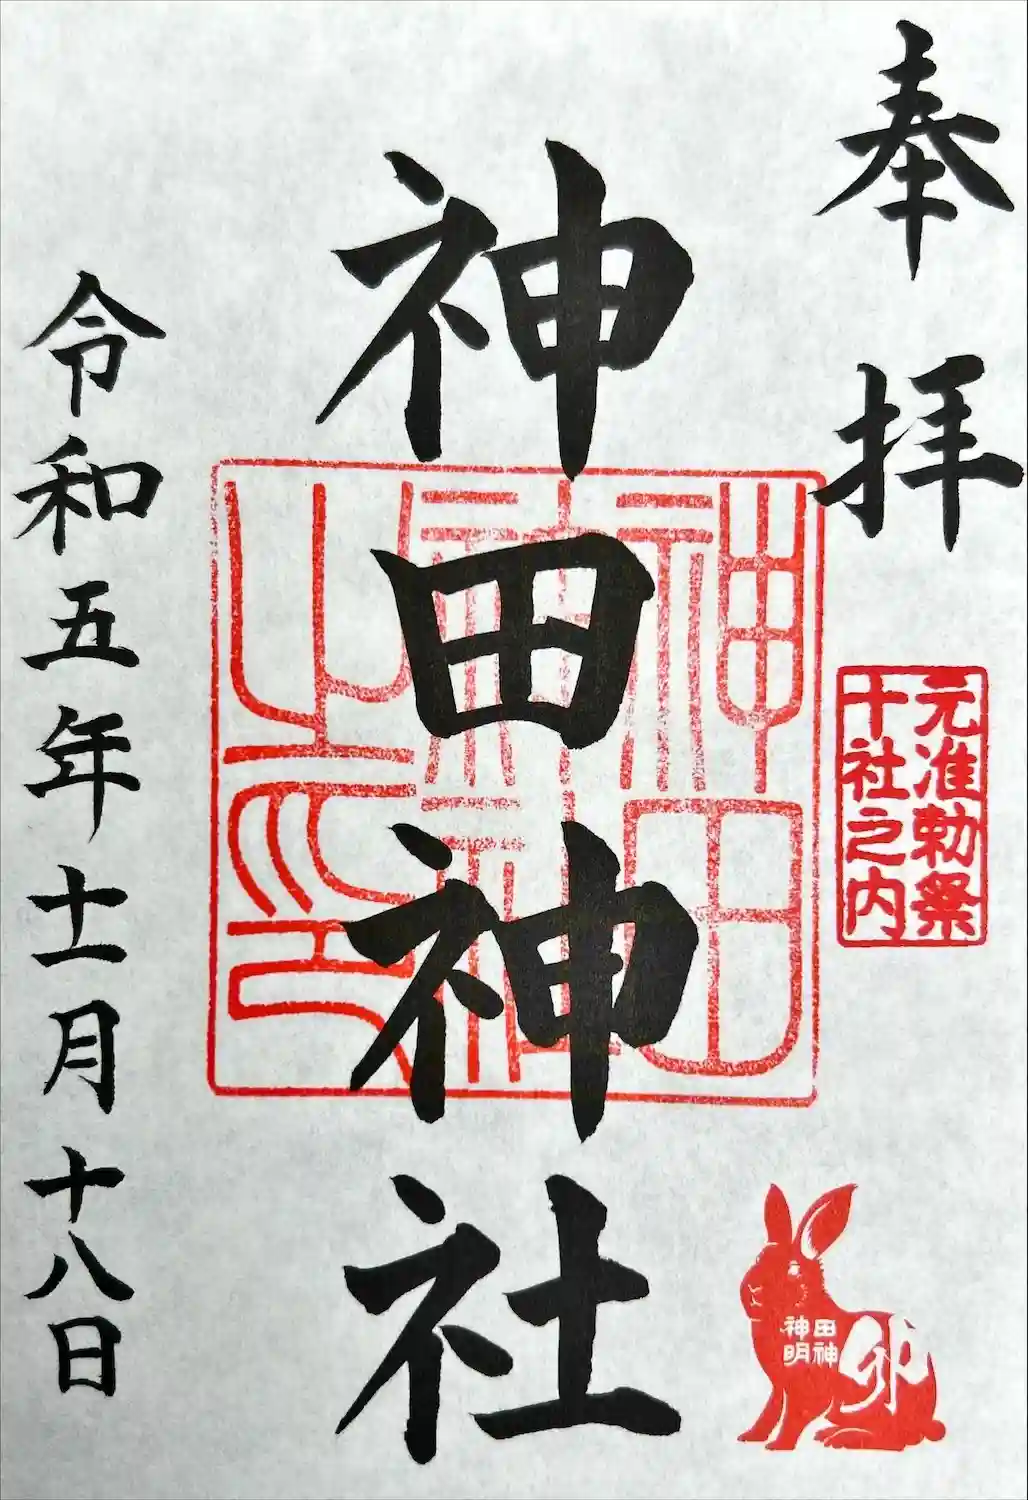 奉拝
元准勅祭
十社之内
神田神社
神田
神社
之印
神田
明神
卯
令和五年十一月十八日